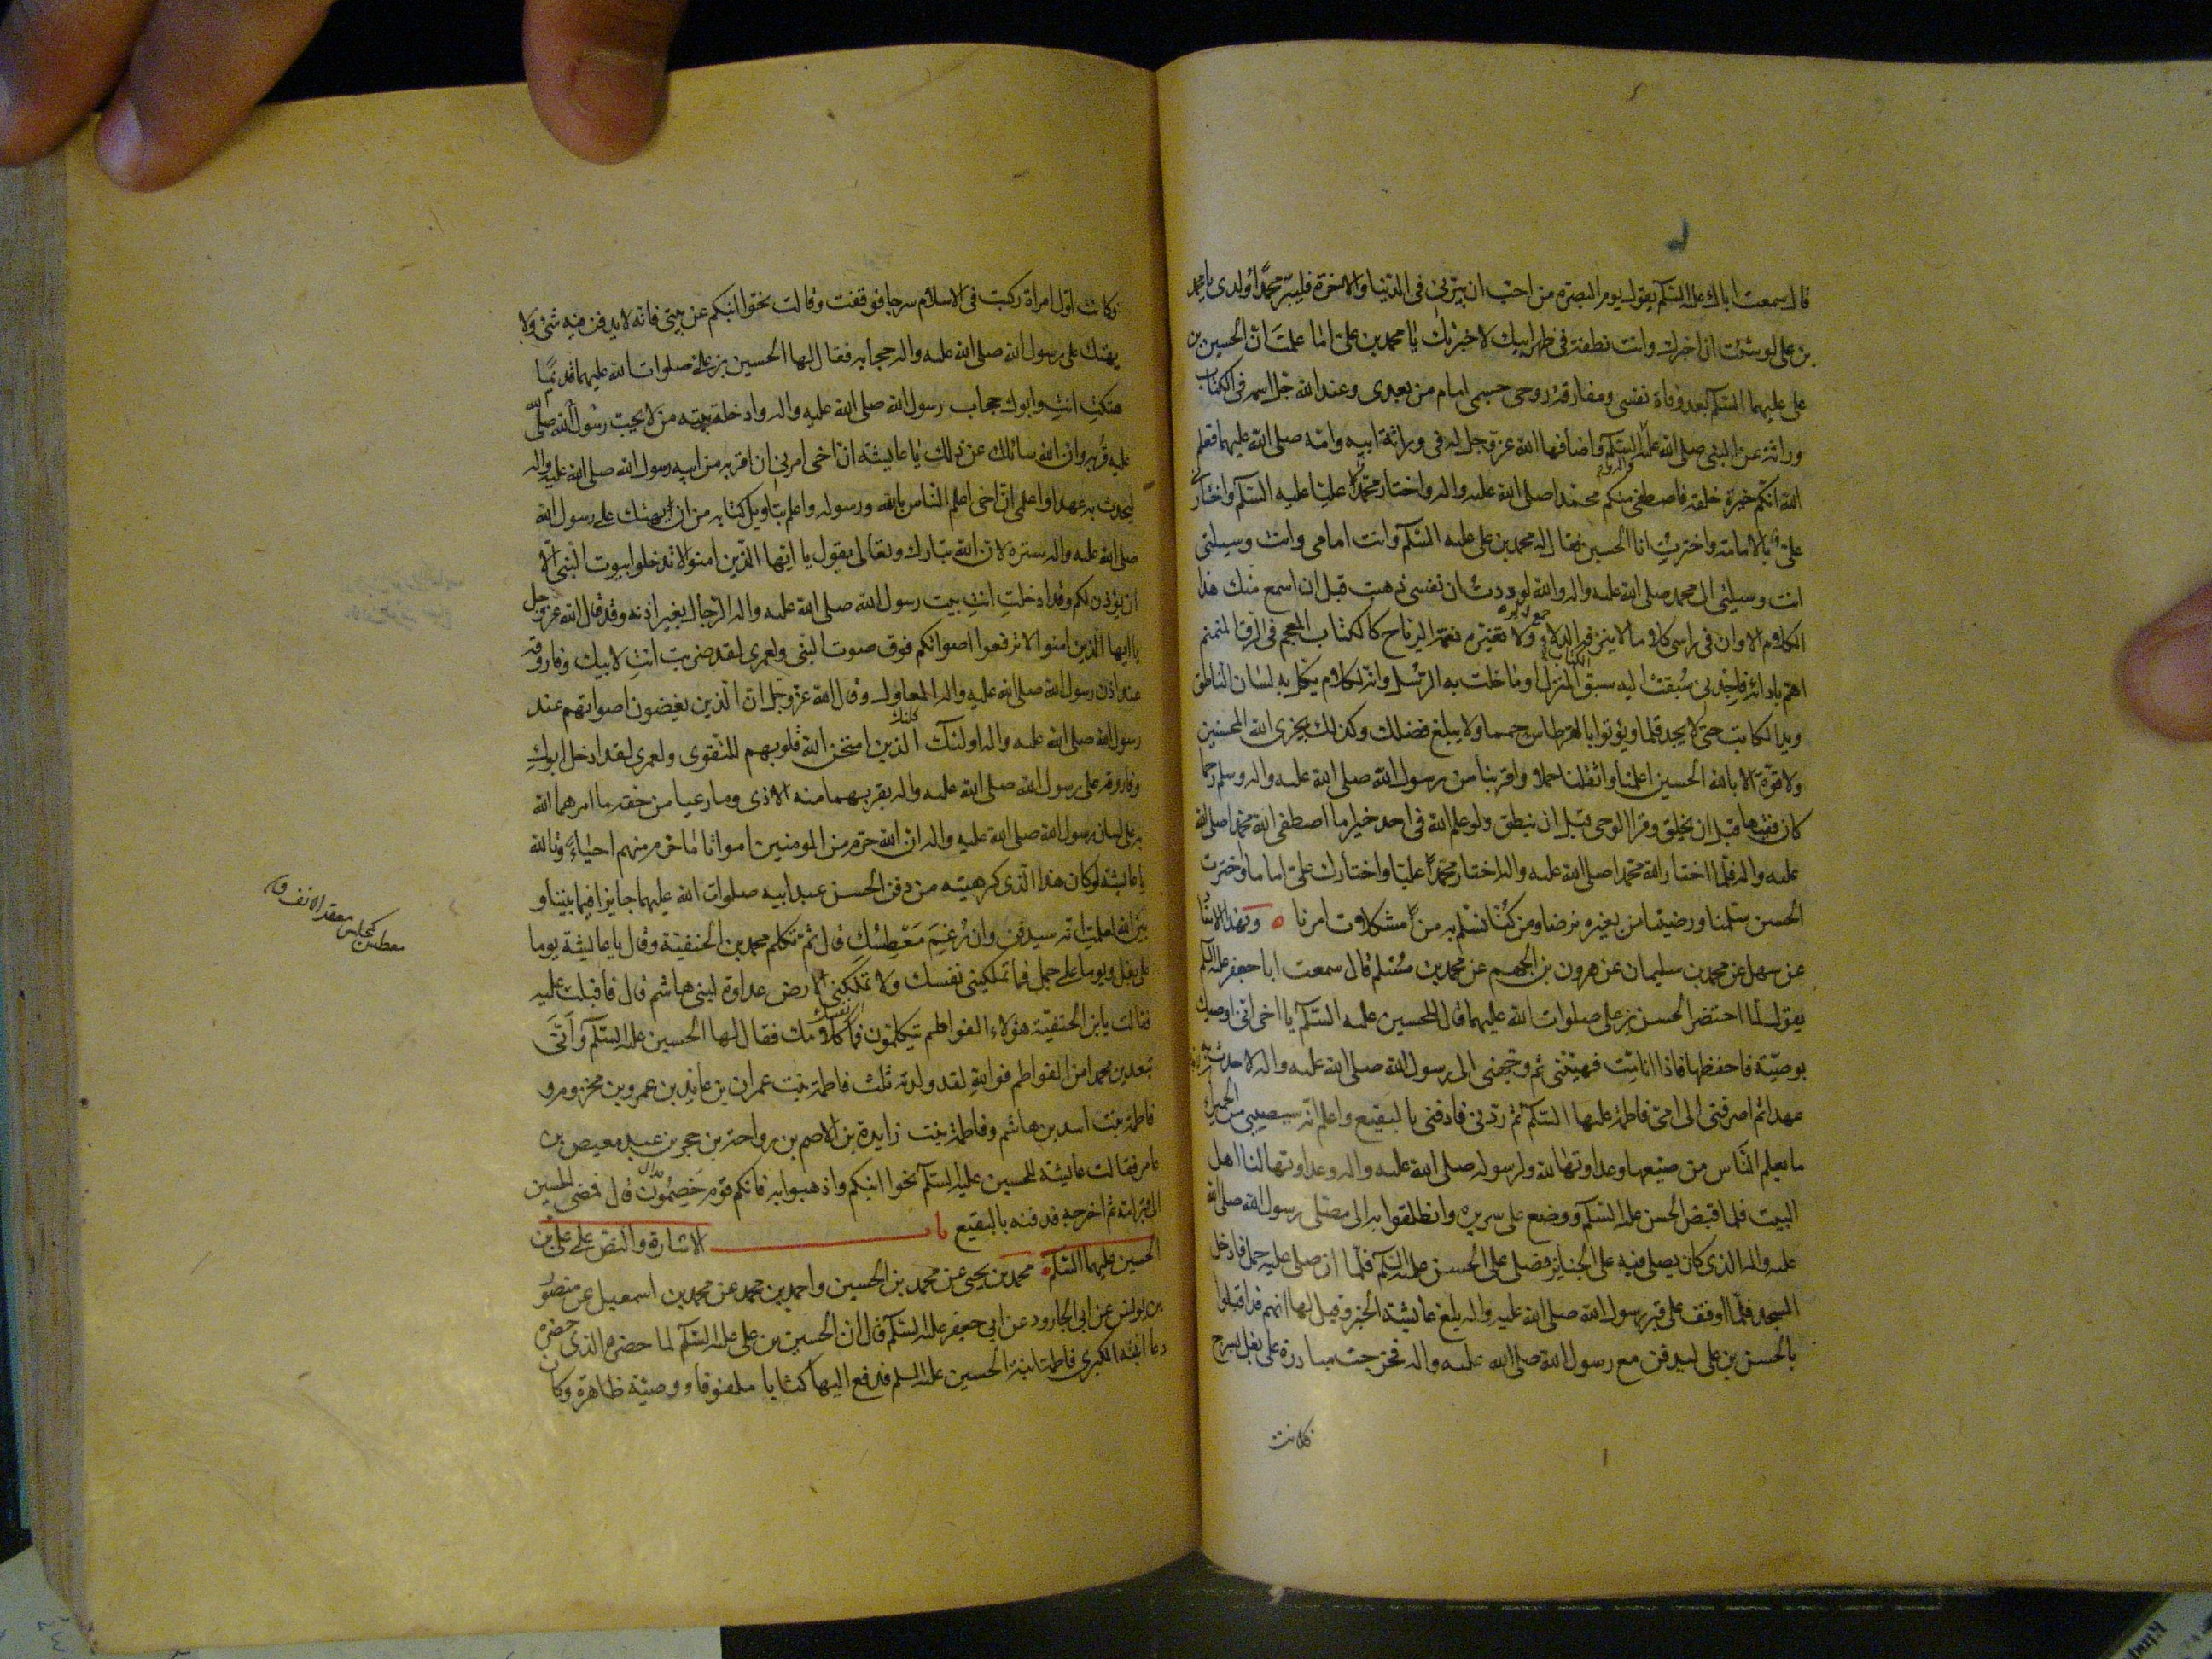 قال سمعت اباك عليه السلم يقول يوم البصرة من احب ان يبرني في الدنيا والاخرة فليبر محمدا ولدي يا محمد
بن علي لو شئت ان اخبرك وانت نطفة في ظهر ابيك لاخبرتك يا محمد بن علي اما علمت ان الحسين بن
علي عليهما السلم بعد وفاة نفسي ومفارقة روحي جسمي امام من بعدي وعند الله جل اسمه في الكتاب
وراثة من النبي صلى الله عليه واله السلم اضافها الله عز وجل له في وراثة ابيه وامه صلى الله عليهما فعلم
الله انكم خيرة خلقه فاصطفى منكم محمدا صلى الله عليه واله واختار محمد عليا عليه السلم واختارني
علي بالامامة واخترت انا الحسين فقال له محمد بن علي عليه السلم انت امامي وانت وسيلتي
انت وسيلتي الى محمد صلى الله عليه واله والله لوددت ان نفسي ذهبت قبل ان اسمع منك هذا
الكلام الا وان في راسي كلاما لا ينزفه الدلاء ولا تغيره نغمة الرياح كالكتاب المعجم في الرق المنمنم
اهم بادائه فاجدني سبقت اليه سبق الكتاب المنزل او ما خلت به الرسل وانه لكلام يكل به لسان الناطق
ويد الكاتب حتى لا يجد قلما ويؤتوا بالقرطاس حمما ولا يبلغ فضلك وكذلك يجزي الله المحسنين
ولا قوة الا بالله الحسين اعلمنا واثقلنا حلما واقربنا من رسول الله صلى الله عليه واله وسلم رحما
كان فقيها قبل ان يخلق وقرا الوحي قبل ان ينطق ولو علم الله في احد خيرا ما اصطفى الله محمدا صلى الله
عليه واله فلما اختار الله محمدا صلى الله عليه واله اختار محمد عليا واختارك علي اماما واخترت
الحسين سلمنا ورضينا من بغيره نرضا ومن كنا نسلم به من مشكلات امرنا وبهذا الاسناد
عن سهل عن محمد بن سليمان عن هرون بن الجهم عن محمد بن مسلم قال سمعت ابا جعفر عليه السلم
يقول لما احتضر الحسن بن علي صلوات الله عليهما قال للحسين عليه السلم يا اخي اني اوصيك
بوصية فاحفظها فاذا انا مت فهيئني ثم وجهني الى رسول الله صلى الله عليه واله لاحدث به
عهدا ثم اصرفني الى امي فاطمة عليها السلم ثم ردني فادفني بالبقيع واعلم انه سيصيبني من الحميراء
ما يعلم الناس من صنيعها وعداوتها لله ولرسوله صلى الله عليه واله وعداوتها لنا اهل
البيت فلما قبض الحسن عليه السلم ووضع على سريره وانطلقوا به الى مصلى رسول الله صلى الله
عليه واله الذي كان يصلي فيه على الجنايز فصلى على الحسن عليه السلم فلما ان صلى عليه حمل فادخل
المسجد فلما اوقف على قبر رسول الله صلى الله عليه واله بلغ عايشة الخبر وقيل لها انهم قد اقبلوا
بالحسن بن علي ليدفن مع رسول الله صلى الله عليه واله فخرجت مبادرة على بغل بسرج
فكانت
فكانت اول امراة ركبت في الاسلام سرجا فوقفت وقالت نحوا ابنكم عن بيتي فانه لا يدفن فيه شئ ولا
يهتك على رسول الله صلى الله عليه واله حجابه فقال لها الحسين بن علي صلوات الله عليهما قديما
هتكت انت وابوك حجاب رسول الله صلى الله عليه واله وادخلت بيته من لا يحب رسول الله صلى الله
عليه قربه وان الله سائلك عن ذلك يا عايشة ان اخي امرني ان اقربه من ابيه رسول الله صلى الله عليه واله
ليحدث به عهدا واعلمي ان اخي اعلم الناس بالله ورسوله واعلم بتاويل كتابه من ان يهتك على رسول الله
صلى الله عليه واله ستره لان الله تبارك وتعالى يقول يا ايها الذين امنوا لا تدخلوا بيوت النبي الا
ان يؤذن لكم وقد ادخلت انت بيت رسول الله صلى الله عليه واله الرجال بغير اذنه وقد قال الله عز وجل
يا ايها الذين امنوا لا ترفعوا اصواتكم فوق صوت النبي ولعمري لقد ضربت انت لابيك وفاروقه
عند اذن رسول الله صلى الله عليه واله المعاول وقال الله عز وجل ان الذين يغضون اصواتهم عند
رسول الله صلى الله عليه واله اولئك الذين امتحن الله قلوبهم للتقوى ولعمري لقد ادخل ابوك
وفاروقه على رسول الله صلى الله عليه واله بقربهما منه الاذى وما رعيا من حقه ما امرهما الله
به على لسان رسول الله صلى الله عليه واله ان الله حرم من المومنين امواتا ما حرم منهم احياء وتالله
يا عايشة لو كان هذا الذي كرهتيه من دفن الحسن عند ابيه صلوات الله عليهما جايزا فيما بيننا و
بين الله لعلمت انه سيدفن وان رغم معطسك قال ثم تكلم محمد بن الحنفية وقال يا عايشة يوما
على بغل ويوما على جمل فما تملكين نفسك ولا تملكين الارض عداوة لبني هاشم قال فاقبلت عليه
فقالت يا بن الحنفية هؤلاء الفواطم يتكلمون فما كلامك فقال لها الحسين عليه السلم واني
تبعدين محمدا من الفواطم فوالله لقد ولدته ثلث فاطمة بنت عمران بن عايذ بن عمرو بن مخزوم و
فاطمة بنت اسد بن هاشم وفاطمة بنت زايدة بن الاصم بن رواحة بن حجر بن عبد معيص بن
عامر فقالت عايشة للحسين عليه السلم نحوا ابنكم واذهبوا به فانكم قوم خصمون قال فمضى الحسين
الى قبر امه ثم اخرجه فدفنه بالبقيع باب الاشارة والنص على علي بن
الحسين عليهما السلم محمد بن يحيى عن محمد بن الحسين واحمد بن محمد عن محمد بن اسمعيل عن منصور
بن يونس عن ابي الجارود عن ابي جعفر عليه السلم قال ان الحسين بن علي عليه السلم لما حضره الذي حضره
دعا ابنته الكبرى فاطمة ابنة الحسين عليه السلم فدفع اليها كتابا ملفوفا ووصية ظاهرة وكان
معطس كمجلس معقد الانف ق